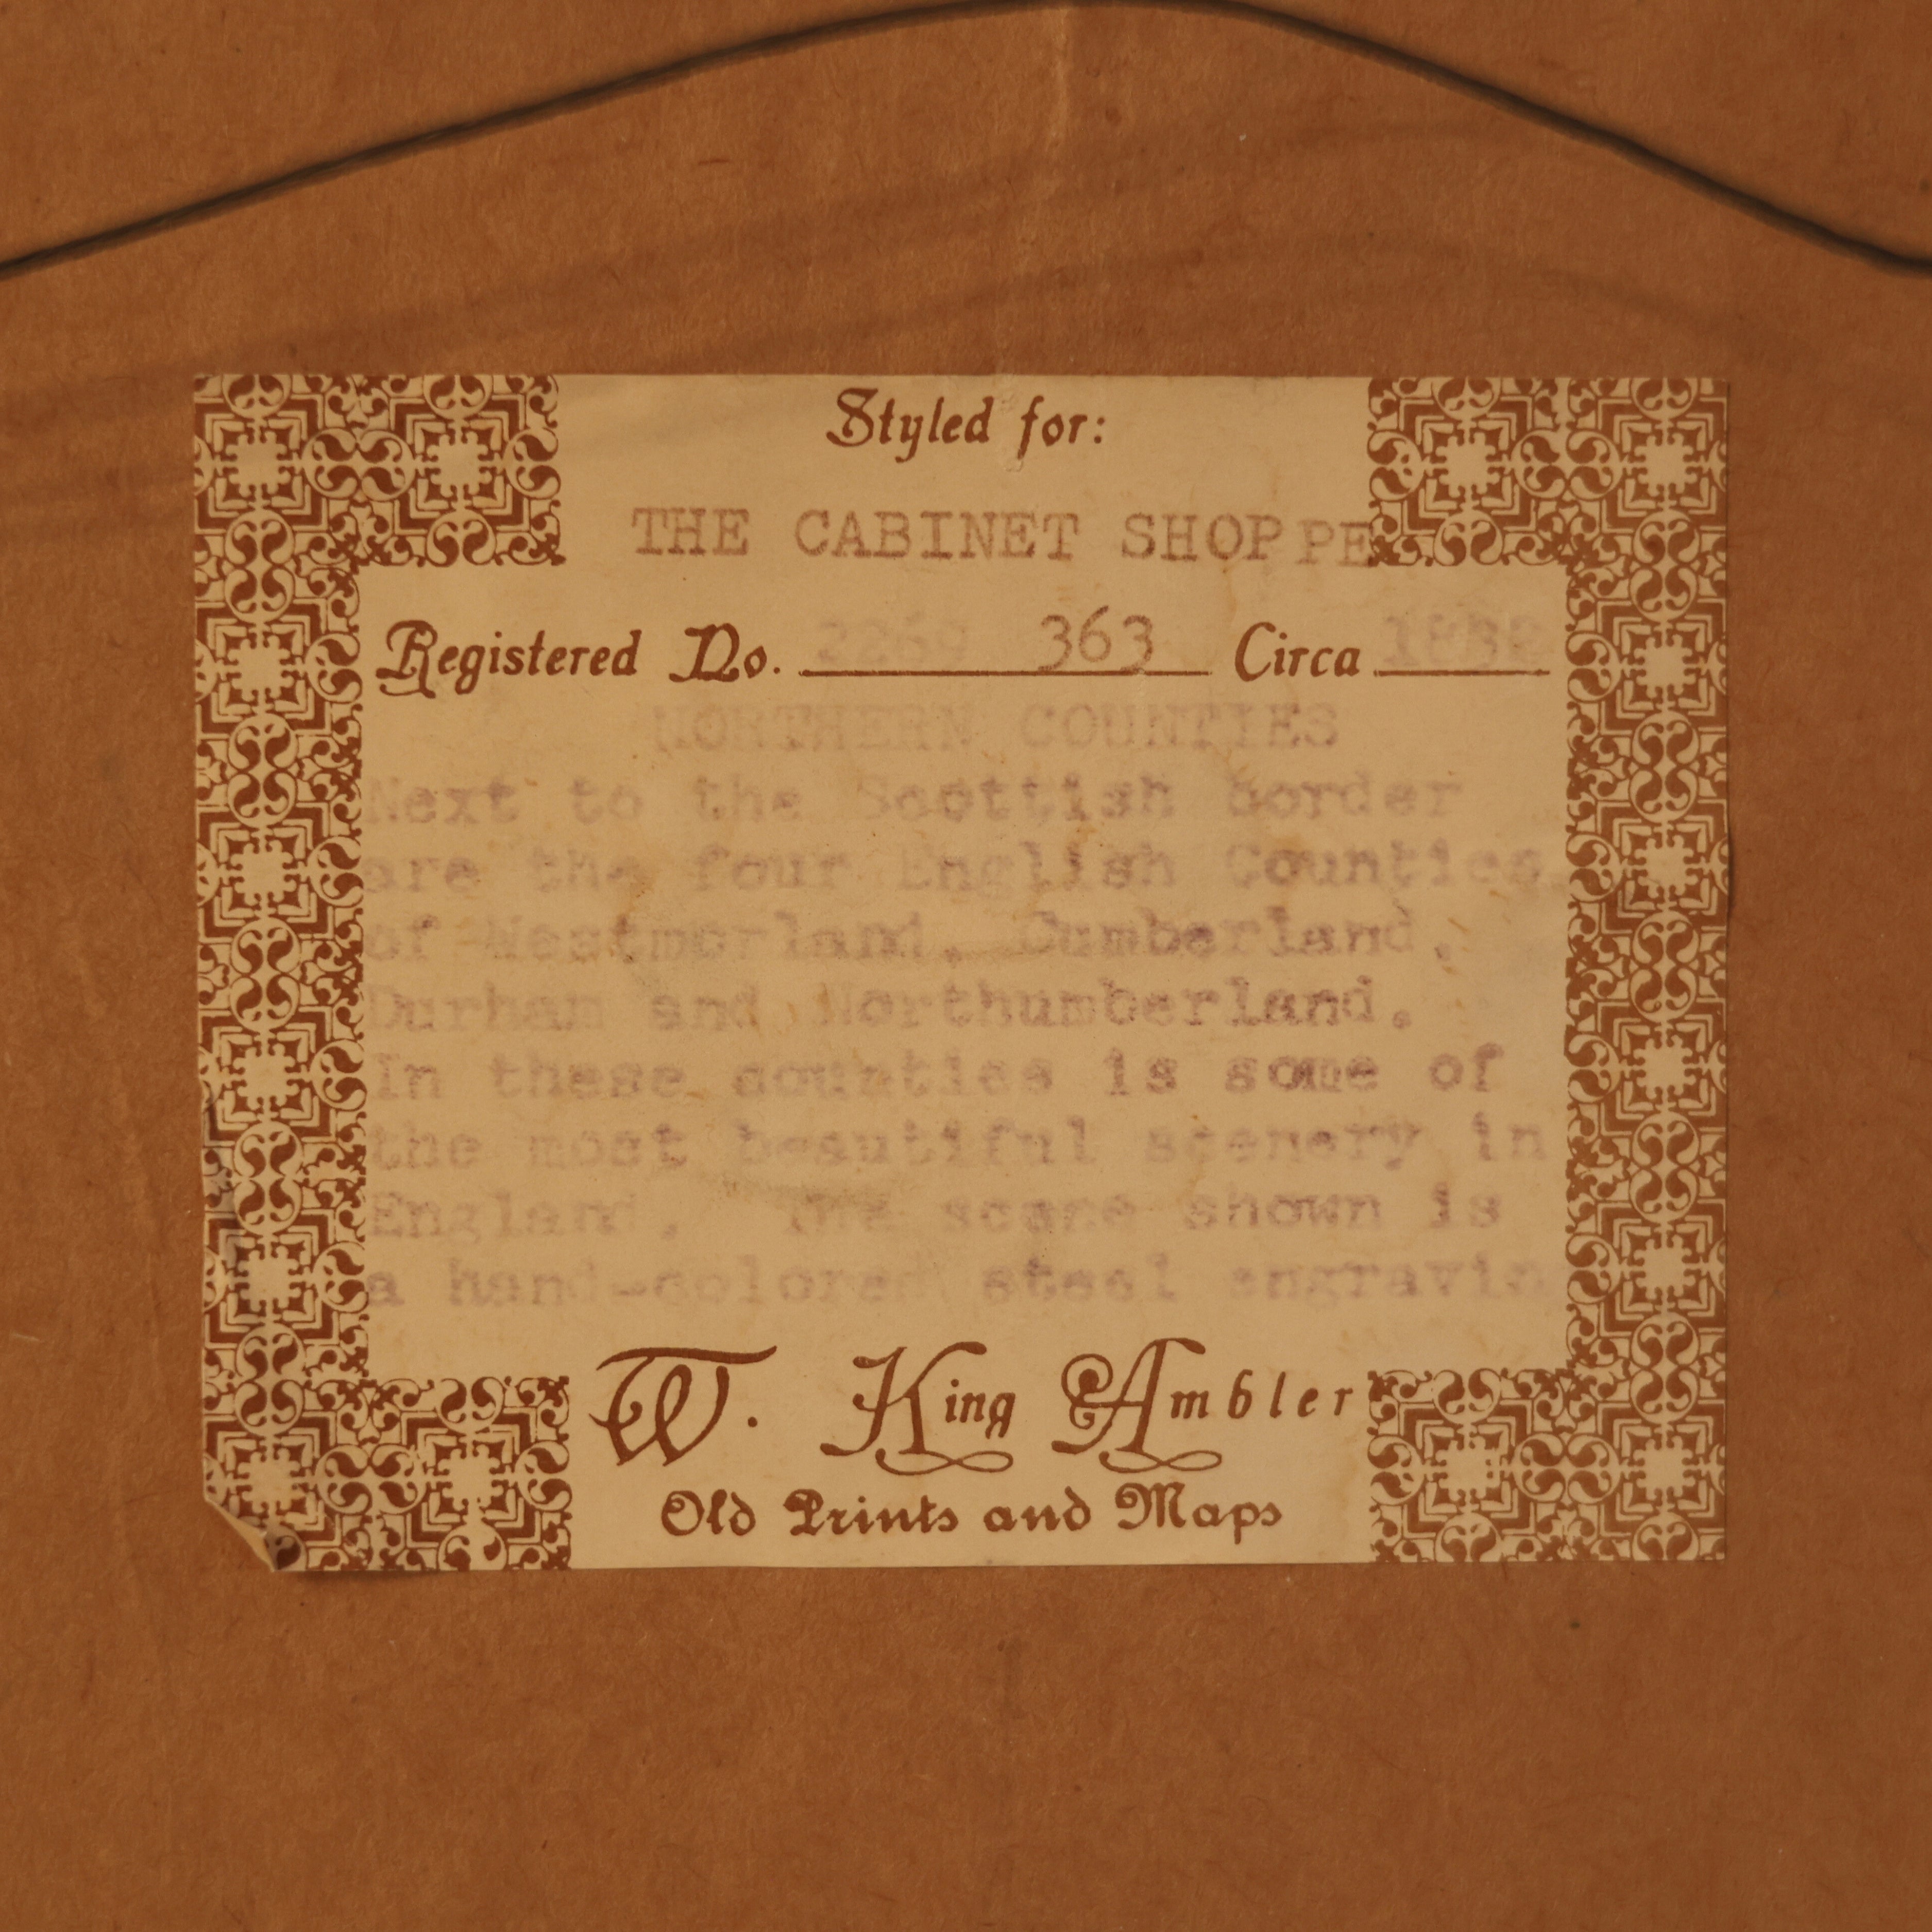 Styled for:
THE CABINET SHOPPE
Registered No. 363 Circa
NORTHERN COUNTIES
Next to the Scottish border
are the four English Counties
of Westmorland, Cumberland,
Durham and Northumberland.
In these counties is some of
the most beautiful scenery in
England. The scene shown is
a hand-colored steel engravin
W. King Ambler
Old Prints and Maps